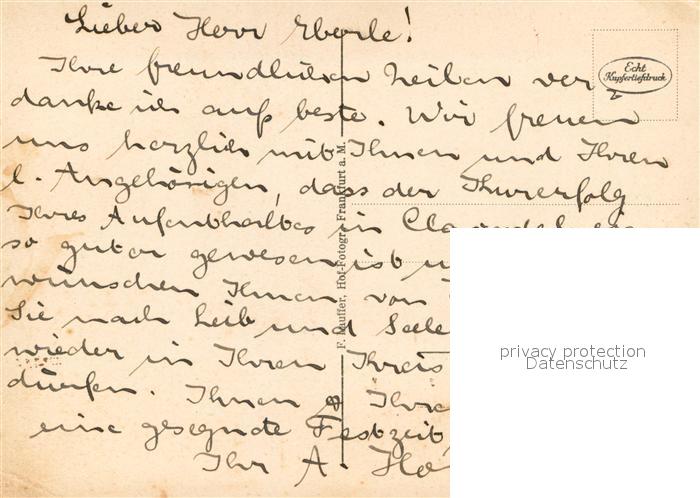 Lieber Herr Eberle!
Ihre freundlichen Zeilen ver-
danke ich aufs beste. Wir freuen
uns herzlich mit Ihnen und Ihren
l. Angehörigen, dass der Kurerfolg
Ihres Aufenthaltes in
so guter gewesen ist
wünschen Ihnen von
Sie nach Leib und Seele
wieder in Ihren Kreis
dürfen. Ihnen & Ihre
eine gesegnete Festzeit,
Ihr A. Ho
Echt
Kupfertiefdruck
F. Lauffer, Hof-Fotogr., Frankfurt a. M.
privacy protection
Datenschutz